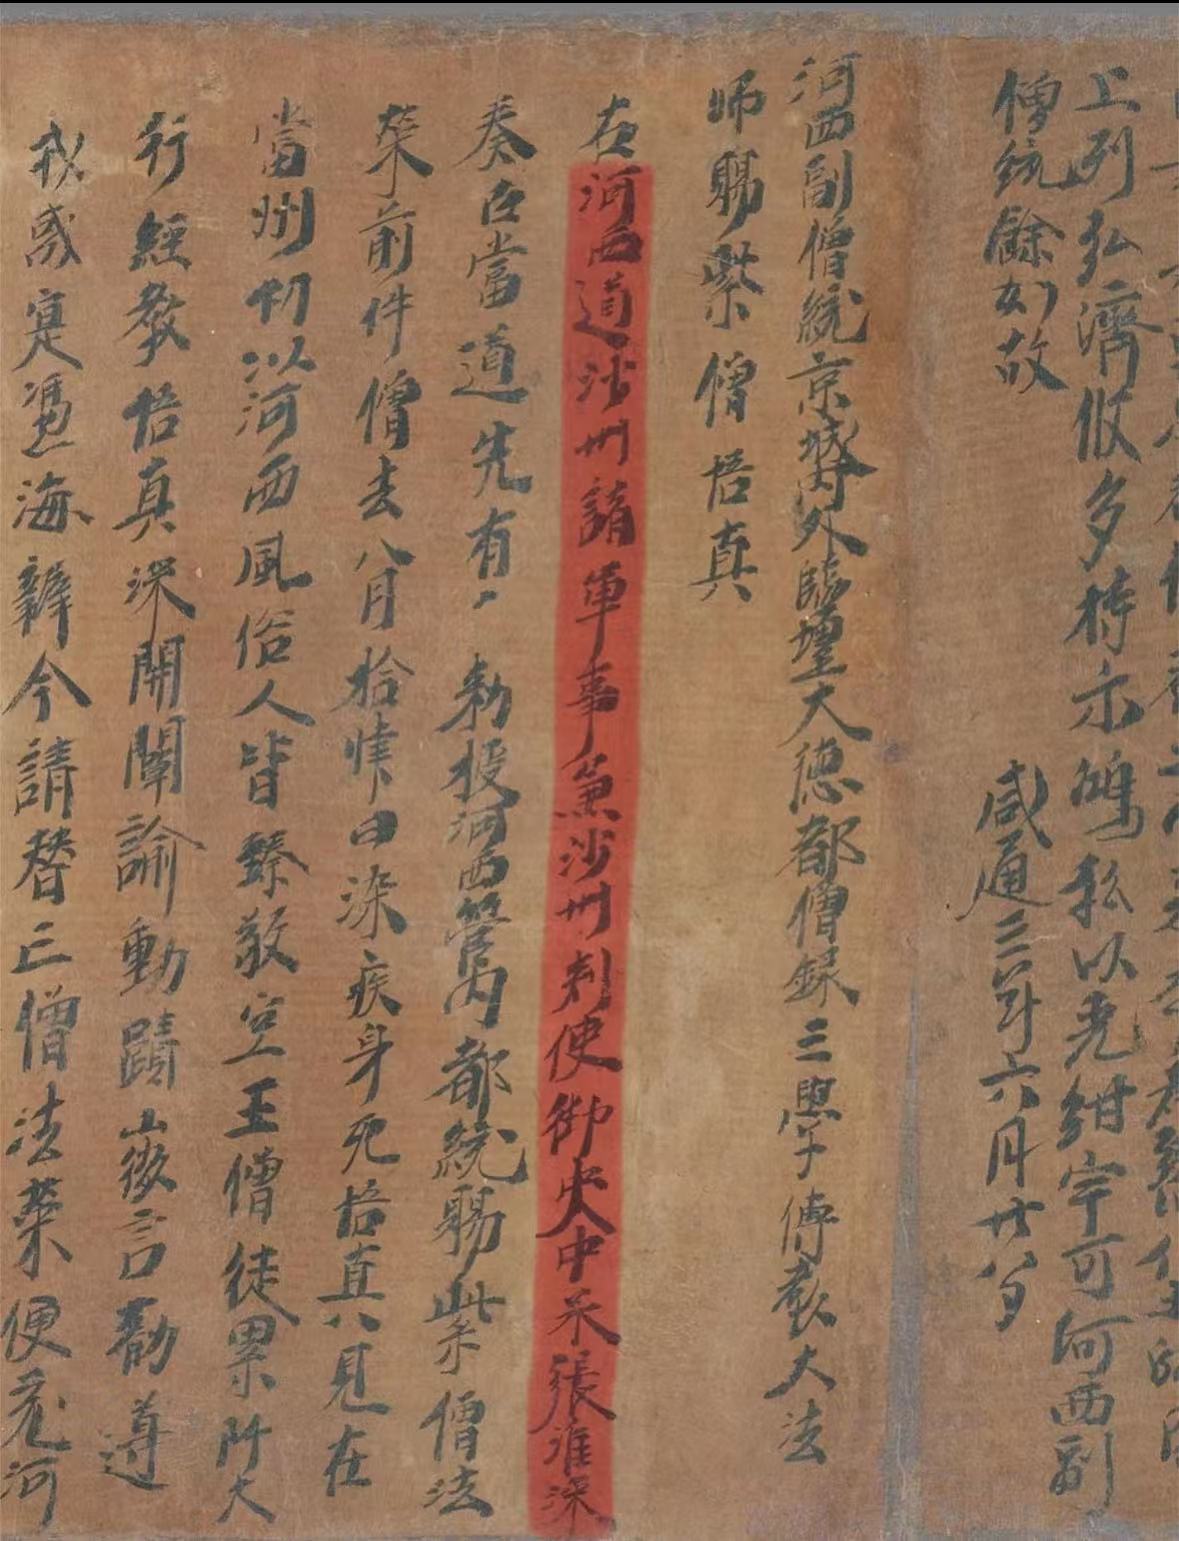 上列弘濟攸多特示鴻私以光紺宇可河西副
僧統餘如故 咸通三年六月廿八日
河西副僧統京城內外臨壇大德都僧錄三學傳教大法
師賜紫僧悟真
右河西道沙州諸軍事兼沙州刺使御史中丞張淮深
奏臣當道先有敕授河西管內都統賜紫僧法
榮前件僧去八月拾肆日染疾身死悟真見在
當州切以河西風俗人皆臻敬空王僧徒累阡大
行經教悟真深開闡諭動蹟微言勸導
戎寔憑海辯今請替亡僧法榮便充河